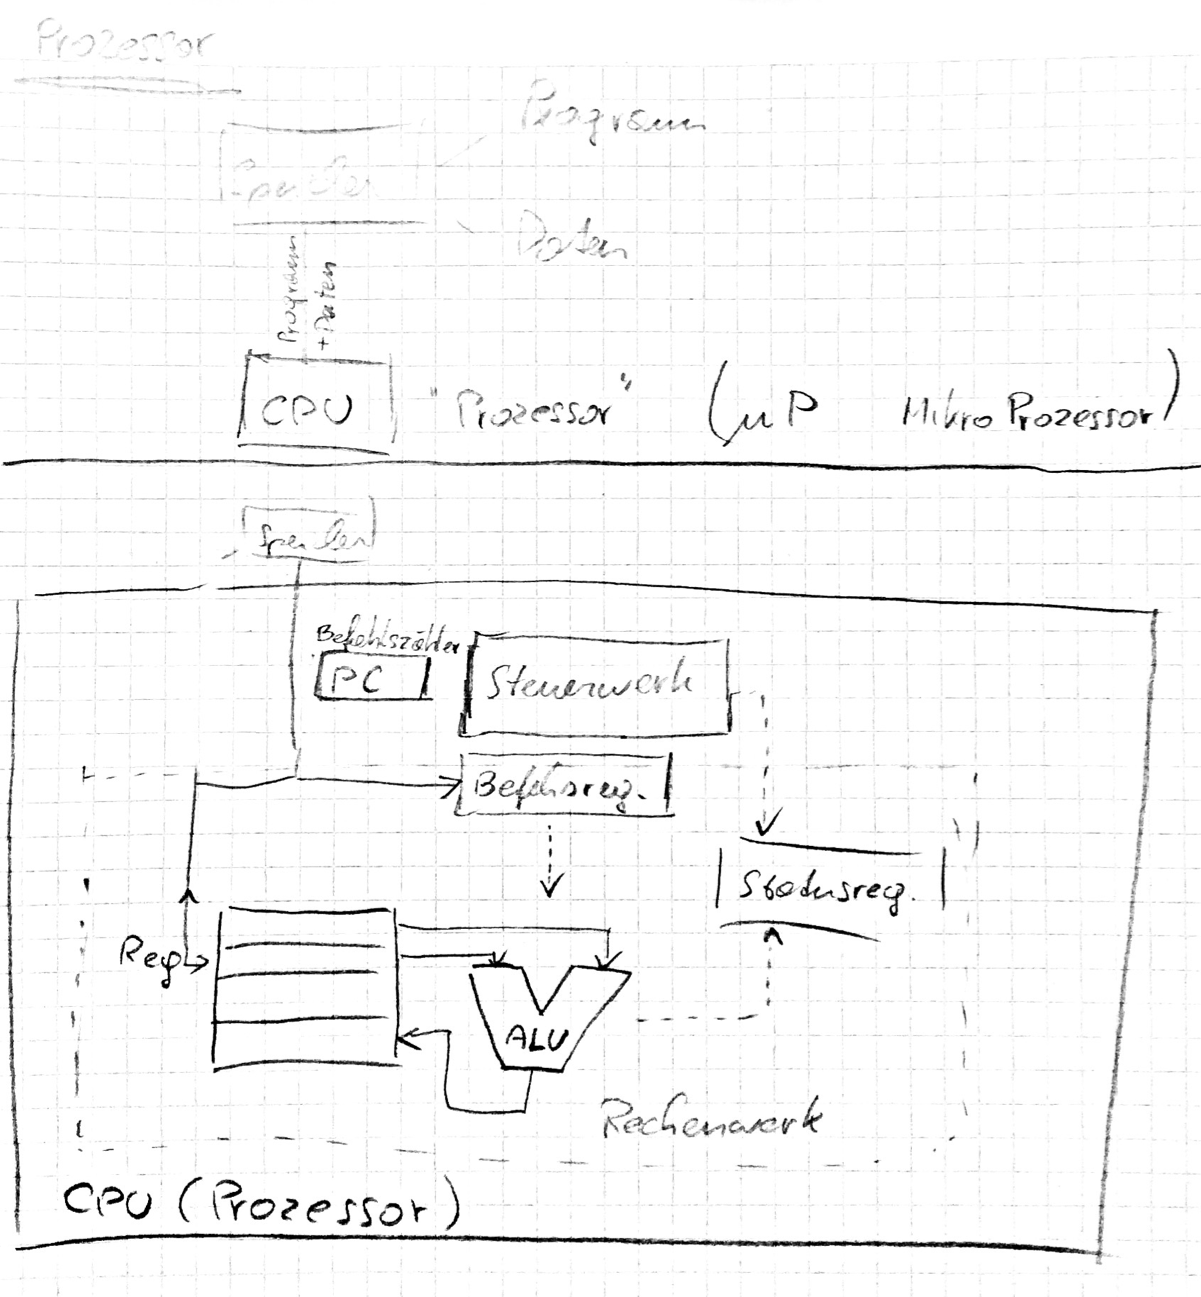 Prozessor
Programm
Speicher
Daten
Programm
+ Daten
CPU "Prozessor" (µP MikroProzessor)
Speicher
Befehlszähler
PC
Steuerwerk
Befehlsreg.
Statusreg.
Reg
ALU
Rechenwerk
CPU (Prozessor)